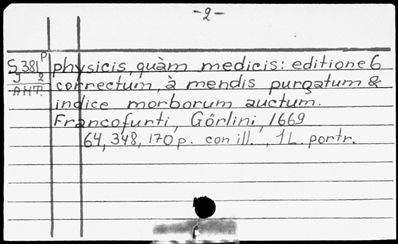 -2-
S 381 P physicis, quàm medicis: editione 6
J 2 correctum, à mendis purgatum &
AHT. indice morborum auctum.
Francofurti, Görlini, 1669
64, 348, 170 p. con ill., 1 L. portr.